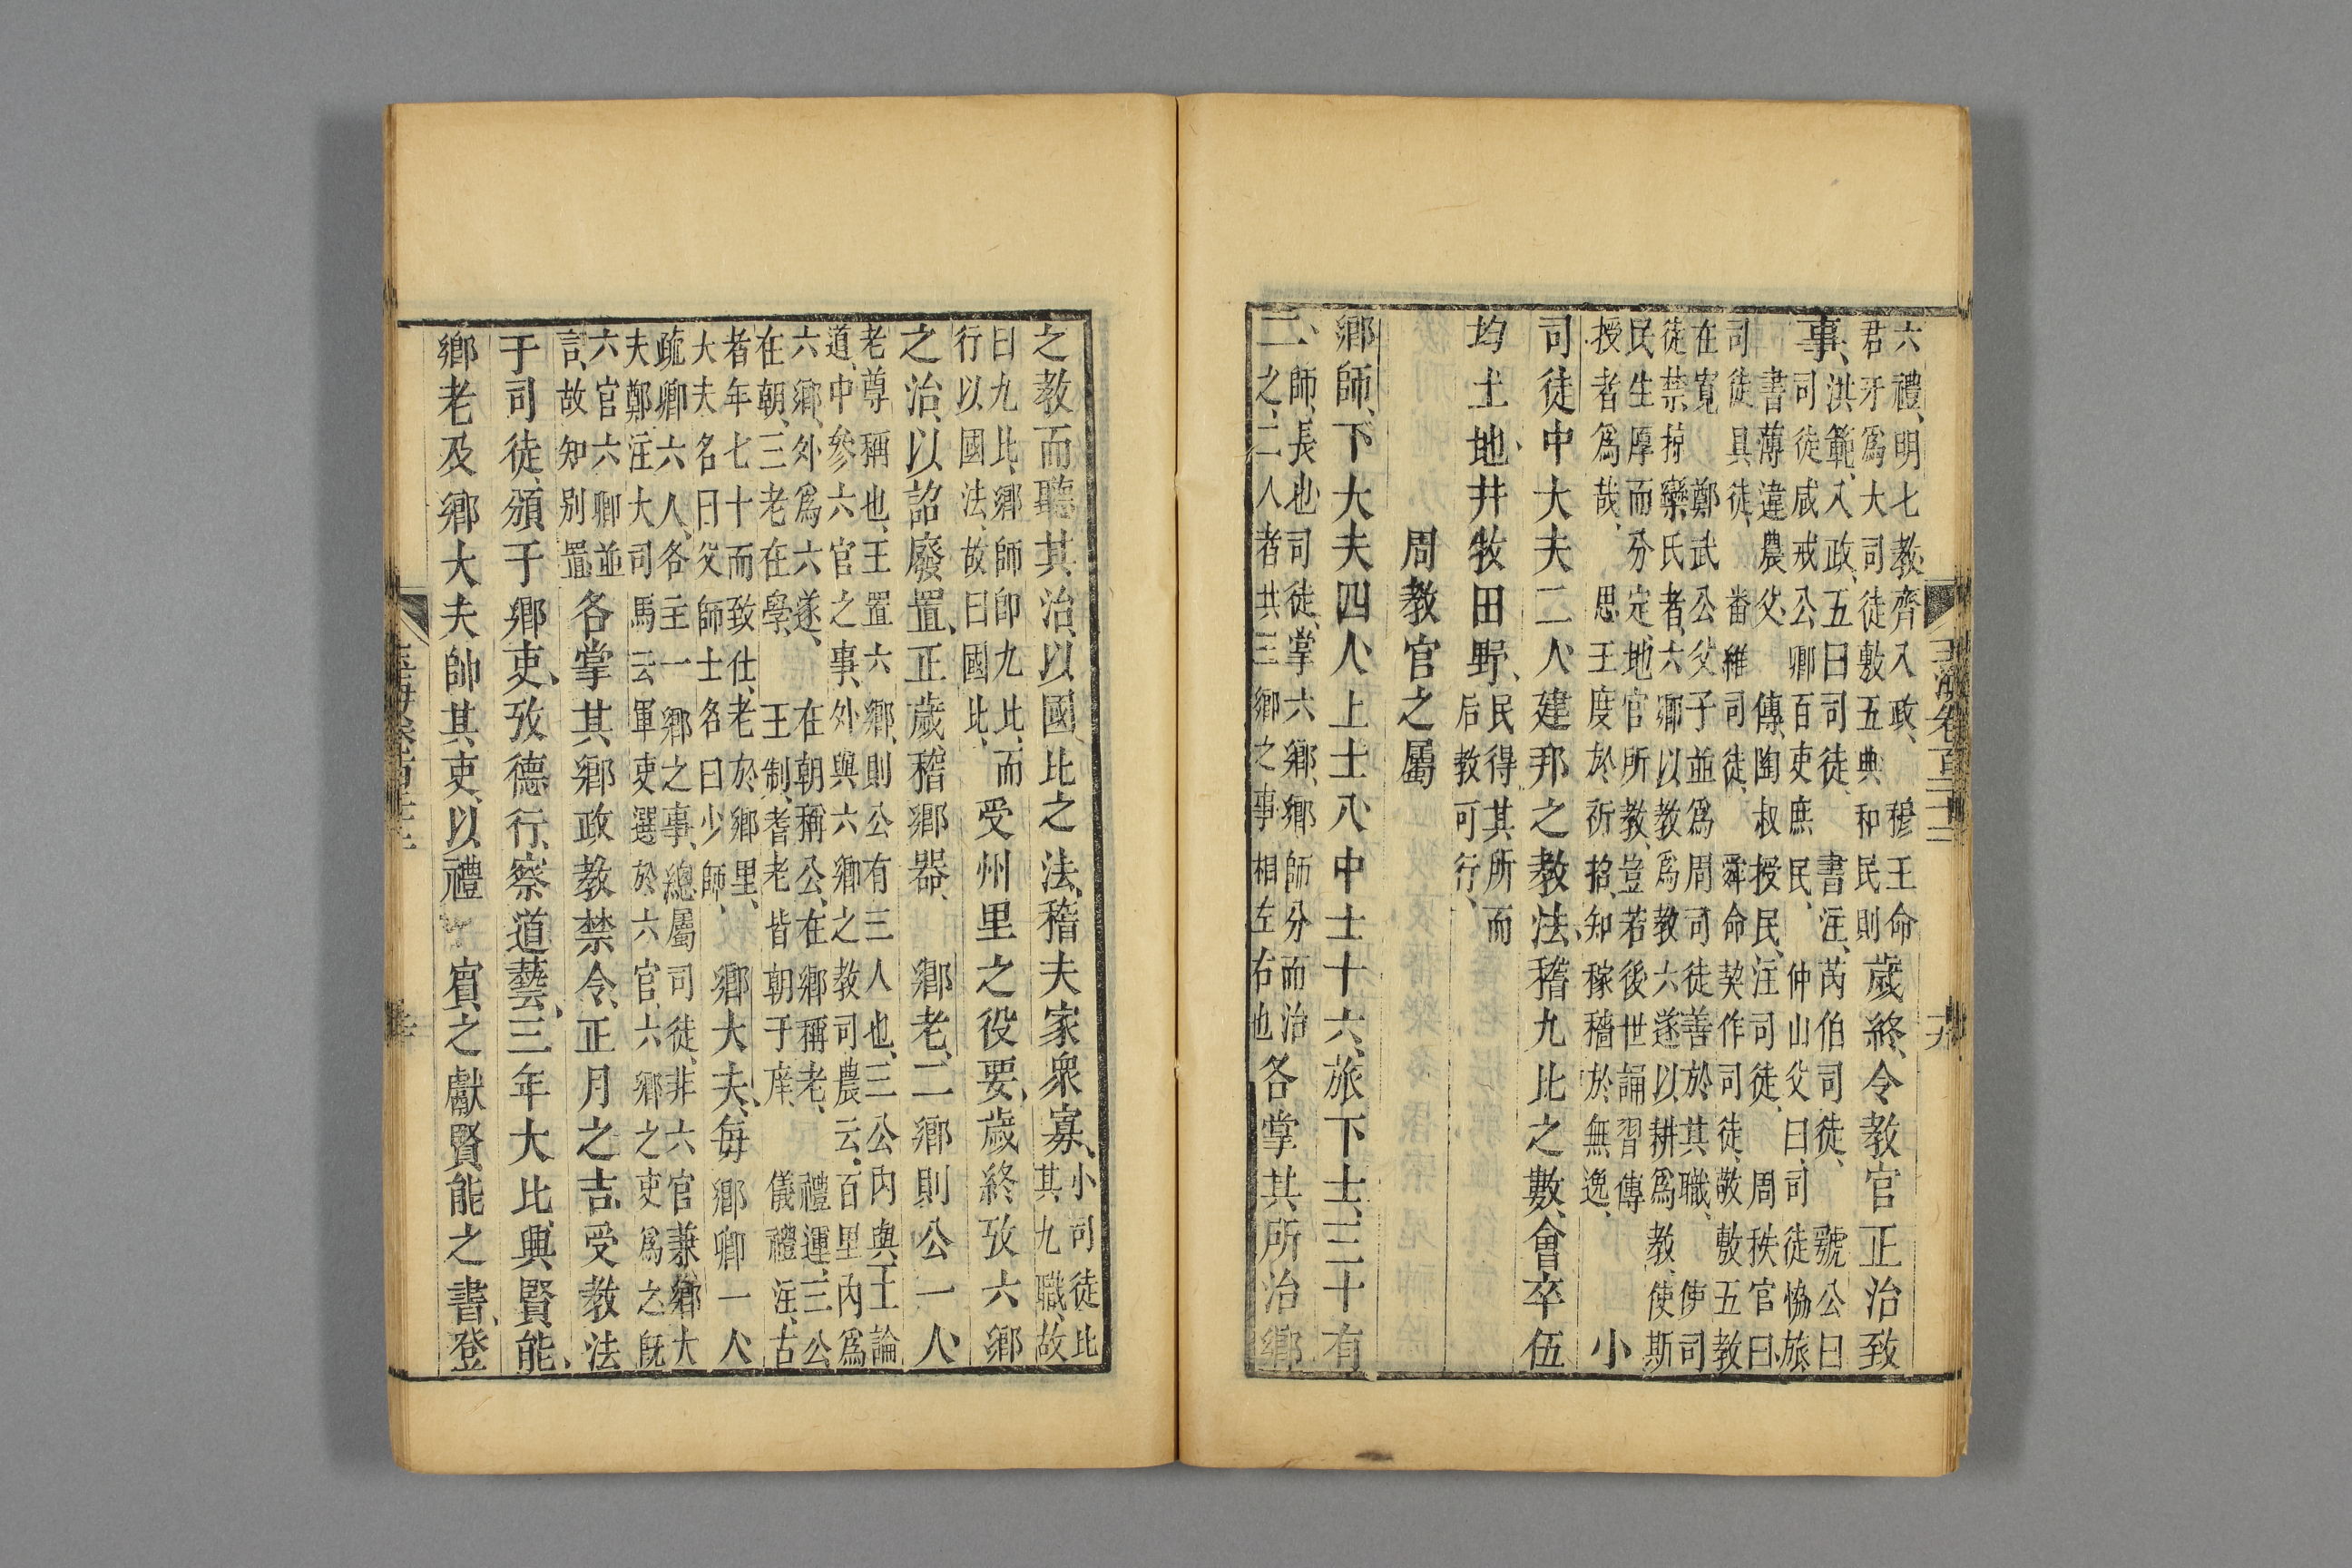 六禮、明七教齊八政、穆王命
君牙爲大司徒敷五典和民則
歲終、令教官正治致
事、
洪範、八政、五曰司徒、書注、芮伯司徒、虢公曰
司徒咸戒公卿百吏庶民、仲山父曰、司徒恊旅
書薄違農父、傳陶叔授民、注司徒、周秩官曰、
司徒具徒、番維司徒、舜命契作司徒、敬敷五教
在寬鄭武公父子並爲周司徒善於其職、使司
徒禁掠欒氏者、六卿以教爲教六遂以耕爲教、使斯
民生厚而分定地官所教、豈若後世誦習傳
授者爲哉、思王度於祈招、知稼穡於無逸、
小
司徒中大夫二人、建邦之教法、稽九比之數、會卒伍
均土地、井牧田野、
民得其所而
后教可行、
周教官之屬
鄉師、下大夫四人、上士八、中士十六、旅下士、三十有
二、
師、長也司徒、掌六鄉、鄉師分而治
之、二人者共三鄉之事相左右也
各掌其所治鄉
玉海卷百二十二 十九
之教而聽其治、以國比之法、稽夫家衆寡、
小司徒比
其九職、故
曰九比、鄉師卽九比、而
行以國法、故曰國比、
受州里之役要、歲終攷六鄉
之治、以詔廢置、正歲、稽鄉器、鄉老、二鄉則公一人、
老尊稱也、王置六鄉、則公有三人也、三公内與王論
道、中參六官之事、外與六鄉之教司農云、百里内爲
六鄉、外爲六遂、在朝稱公、在鄉稱老、禮運、三公
在朝、三老在學、王制、耆老皆朝于庠、儀禮注、古
者年七十而致仕、老於鄉里、
大夫名曰父師士名曰少師、
鄉大夫、每鄉卿一人
疏卿六人、各主一鄉之事、總屬司徒、非六官兼鄉大
夫鄭注大司馬云軍吏選於六官、六鄉之吏爲之旣
六官六卿並
言、故知別置
各掌其鄉政教禁令、正月之吉、受教法
于司徒、頒于鄉吏、攷德行、察道藝、三年大比、興賢能、
鄉老及鄉大夫帥其吏、以禮賓之獻賢能之書、登